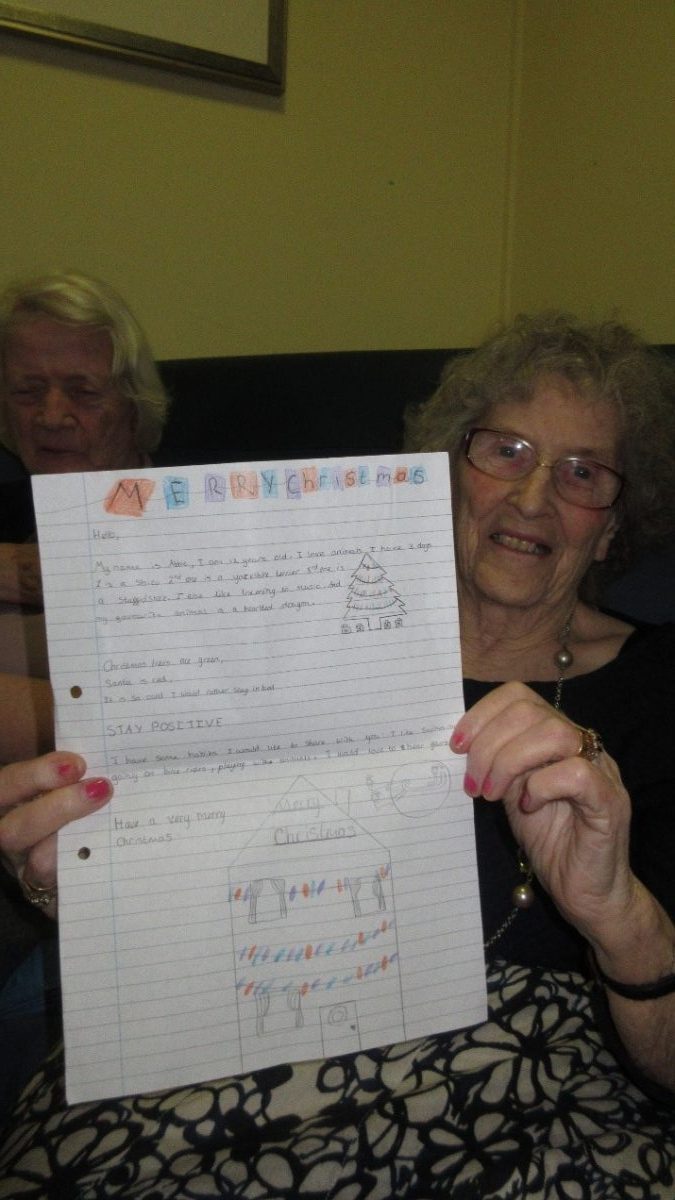 MERRY Christmas
Hello,
My name is I am 12 years old. I love animals I have 3 dogs
1 is a 2nd one is a yorkshire terrier 3rd one is
a I also like listening to music. And
my favourite animal is a bearded dragon.
Christmas trees are green,
Santa is red,
It is so cold I would rather stay in bed
STAY POSITIVE
I have some hobbies I would like to share with you. I like
going on bike rides, playing with animals. I would love to hear yours
Have a very merry
Christmas
Merry
Christmas